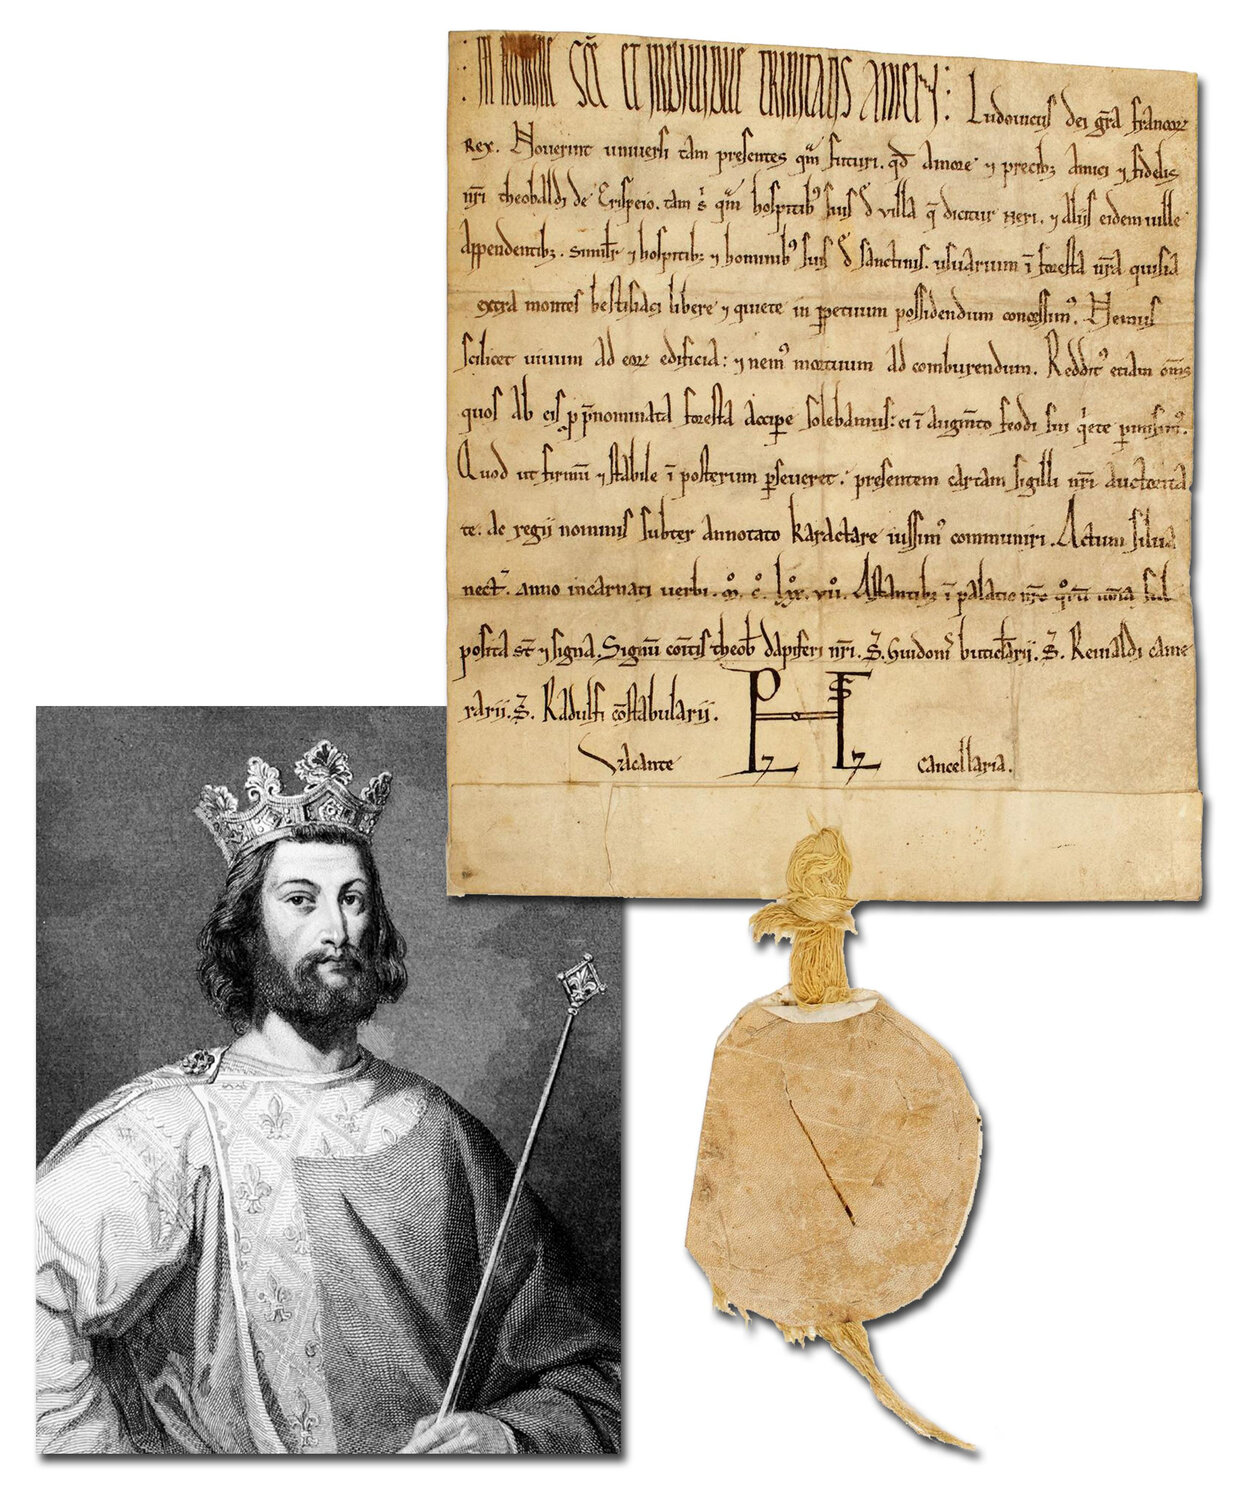 : IN NOMINE SC̄E ET INDIVIDUE TRINITATIS AMEN : Ludovicus dei gr̄a francoꝝ
Rex. Noverint universi tam presentes qͣm futuri. qd̄ amore ⁊ precibꝫ amici ⁊ fidelis
nr̄i theobaldi de Crispeio. tam qͣm hospitibꝰ suis villa q̄ dicitur Neri. ⁊ aliis eidem ville
appendentibꝫ. similr̄ ⁊ hospitibꝫ ⁊ hominibꝰ suis sanctinis. usuarium ī foresta nr̄a quisia
extra montes bestisiaci libere ⁊ quiete in ꝑpetuum possidendum concessimꝰ. Nemus
scilicet vivum ad eoꝝ edificia : ⁊ nemꝰ mortuum ad comburendum. Redditꝰ etiam om̄s
quos ab eis ꝑ p̄nominata foresta accipe solebamus : ei ī augm̄to feodi sui
Quod ut firmū ⁊ stabile ī posterum ꝑseveret. presentem cartam sigilli nr̄i auctorita
te. ac regii nominis subter annotato karactare iussimꝰ communiri. Actum silva
nect. anno incarnati verbi. m̊. c̊. lxx̊. vii̊. Astantibꝫ ī palatio nr̄o qͦrū nōīa sub
posita st̄ ⁊ signa. Signū com̄tis theob dapiferi nr̄i. S̄. Guidonis buticlarii. S̄. Reinaldi came
rarii. S̄. Radulfi cōstabularii.
Vacante cancellaria.